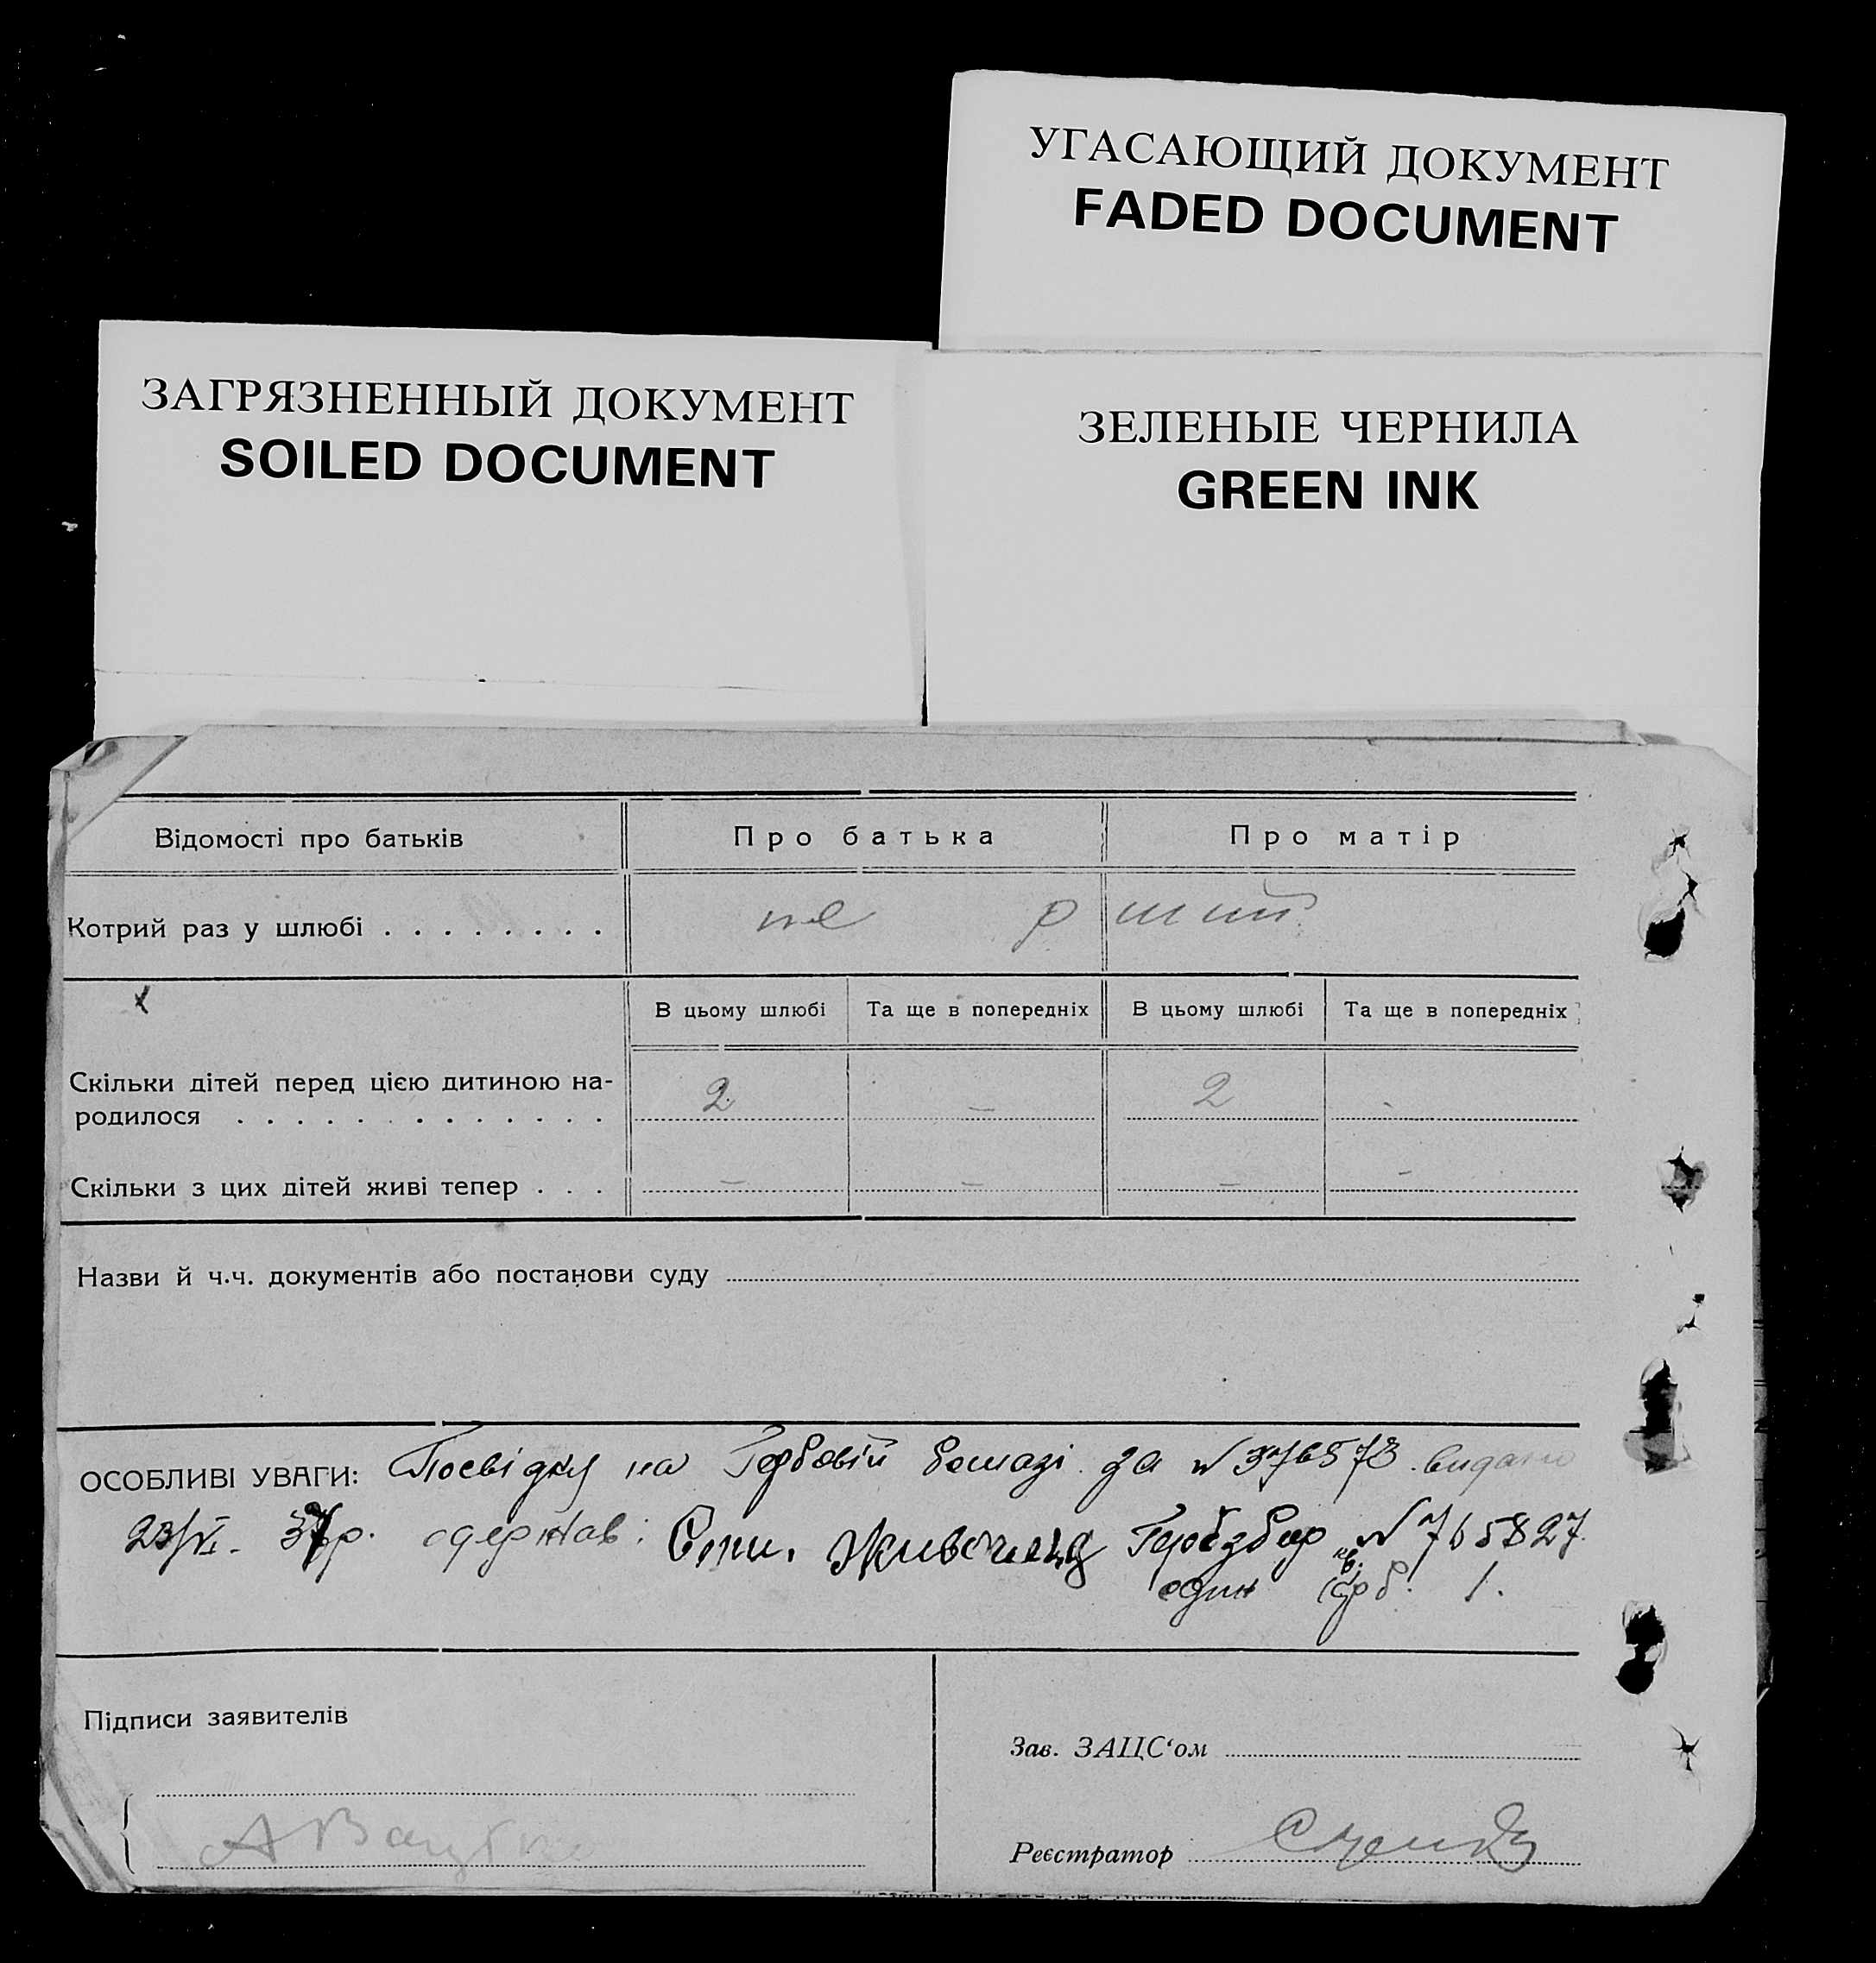 УГАСАЮЩИЙ ДОКУМЕНТ
FADED DOCUMENT
ЗАГРЯЗНЕННЫЙ ДОКУМЕНТ
SOILED DOCUMENT
ЗЕЛЕНЫЕ ЧЕРНИЛА
GREEN INK
Відомості про батьків Про батька Про матір
Котрий раз у шлюбі . . . . . . . .
В цьому шлюбі Та ще в попередніх В цьому шлюбі Та ще в попередніх
Скільки дітей перед цією дитиною на-
родилося . . . . . . . . . . . . . 2 – 2 -
Скільки з цих дітей живі тепер . . . – – – –
Назви й ч.ч. документів або постанови суду
ОСОБЛИВІ УВАГИ: Посвідку на Гербовій бомазі за № 376573 видано
23/VI. 37р. одержав: Гербзбор № 765827.
один крб. 1.
Підписи заявителів
Зав. ЗАЦС‘ом
Реєстратор